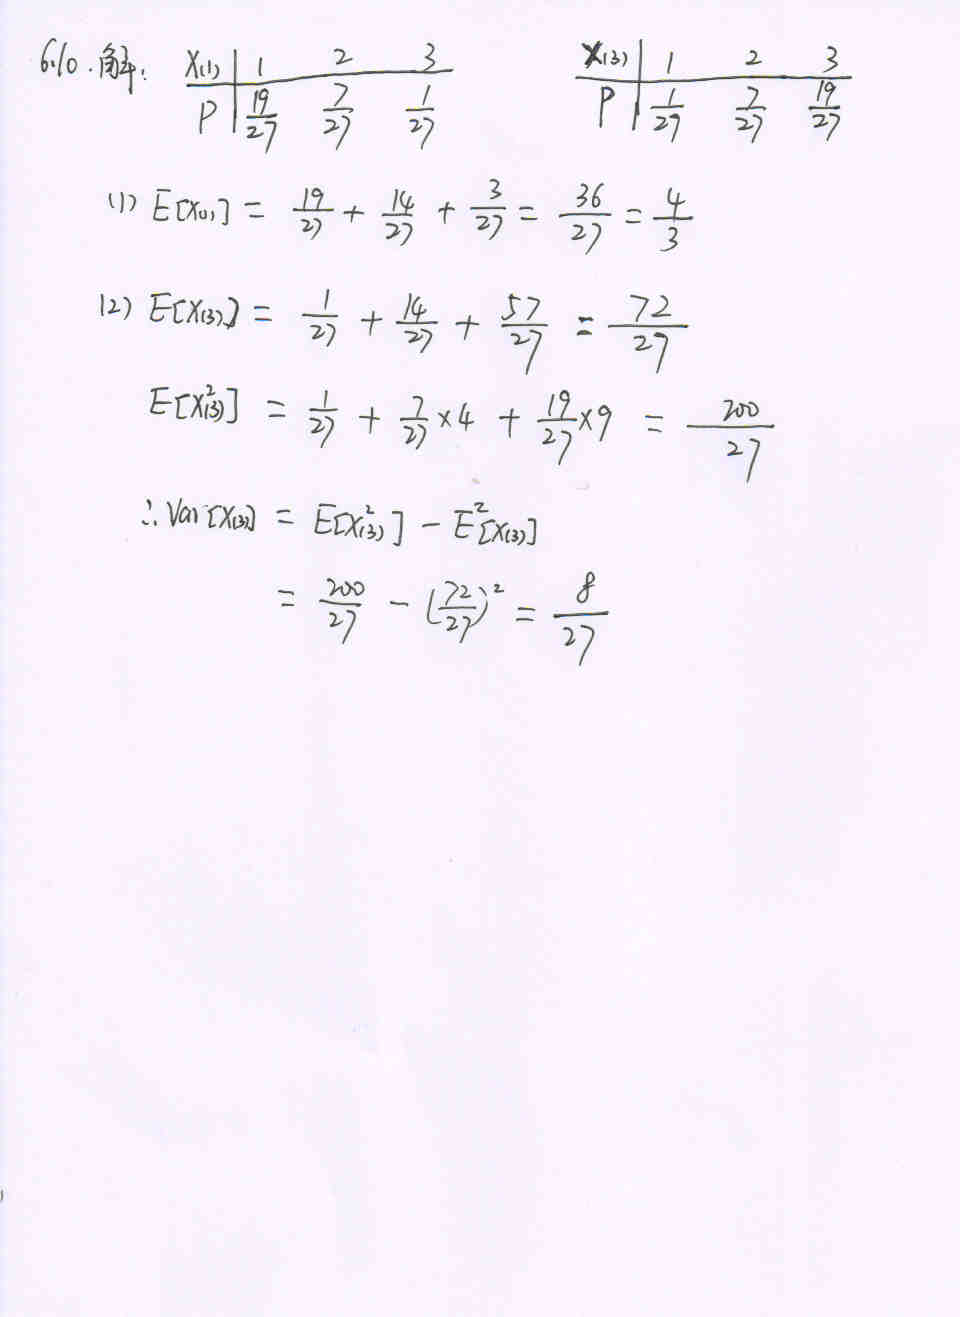 6.10. 解:  X(1) | 1  2  3    X(3) | 1  2  3
P | 19/27  7/27  1/27    P | 1/27  7/27  19/27
(1) E[X(1)] = 19/27 + 14/27 + 3/27 = 36/27 = 4/3
(2) E[X(3)] = 1/27 + 14/27 + 57/27 = 72/27
E[X²(3)] = 1/27 + 7/27 × 4 + 19/27 × 9 = 200/27
∴ Var[X(3)] = E[X²(3)] - E²[X(3)]
= 200/27 - (72/27)² = 8/27